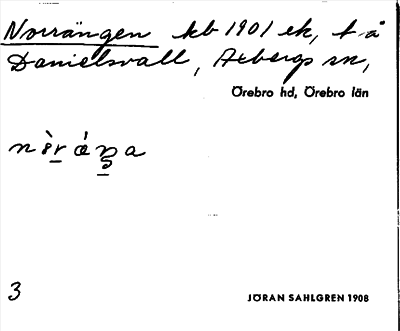 Norrängen kb 1901 ek, t. å
Danielsvall, Axbergs sn,
Örebro hd, Örebro län
3
JÖRAN SAHLGREN 1908